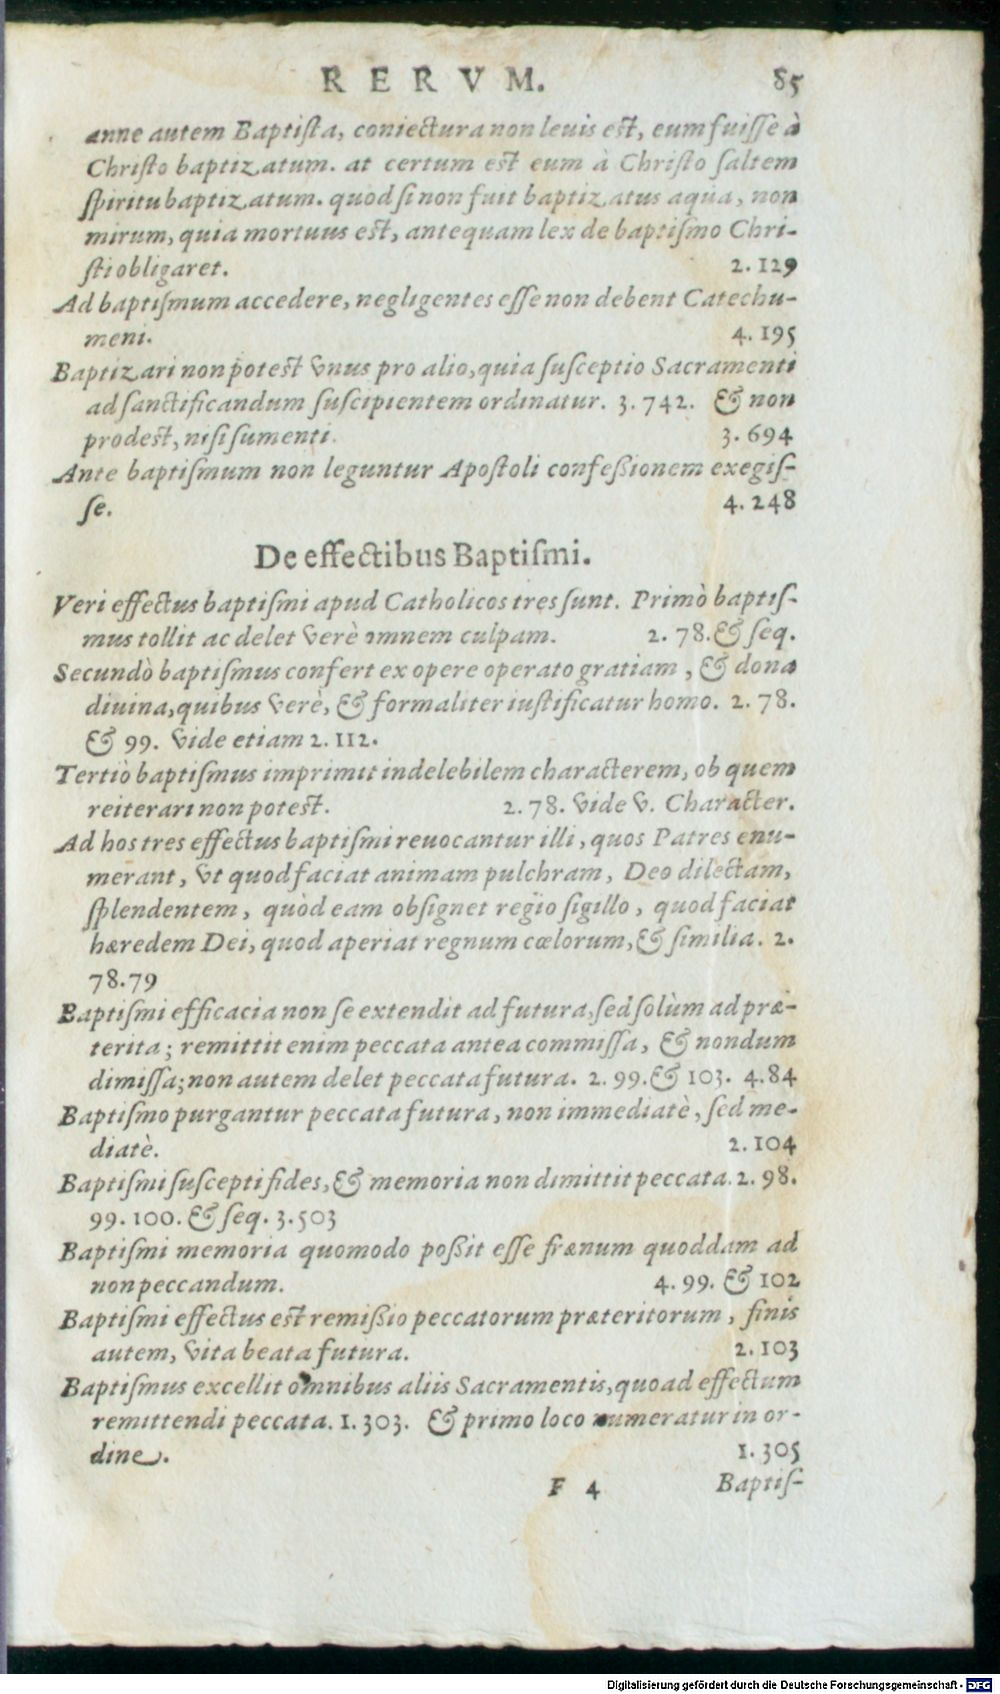 RERVM. 85
anne autem Baptista, coniectura non leuis est, eum fuisse à
Christo baptizatum. at certum est eum à Christo saltem
spiritu baptizatum. quod si non fuit baptizatus aqua, non
mirum, quia mortuus est, antequam lex de baptismo Chri-
sti obligaret. 2. 129
Ad baptismum accedere, negligentes esse non debent Catechu-
meni. 4. 195
Baptizari non potest vnus pro alio, quia susceptio Sacramenti
ad sanctificandum suscipientem ordinatur. 3. 742. & non
prodest, nisi sumenti. 3. 694
Ante baptismum non leguntur Apostoli confeßionem exegis-
se. 4. 248
De effectibus Baptismi.
Veri effectus baptismi apud Catholicos tres sunt. Primò baptis-
mus tollit ac delet verè omnem culpam. 2. 78. & seq.
Secundò baptismus confert ex opere operato gratiam, & dona
diuina, quibus verè, & formaliter iustificatur homo. 2. 78.
& 99. vide etiam 2. 112.
Tertiò baptismus imprimit indelebilem characterem, ob quem
reiterari non potest. 2. 78. vide v. Character.
Ad hos tres effectus baptismi reuocantur illi, quos Patres enu-
merant, vt quod faciat animam pulchram, Deo dilectam,
splendentem, quòd eam obsignet regio sigillo, quod faciat
hæredem Dei, quod aperiat regnum cœlorum, & similia. 2.
78.79
Baptismi efficacia non se extendit ad futura, sed solùm ad præ-
terita; remittit enim peccata antea commissa, & nondum
dimissa; non autem delet peccata futura. 2. 99. & 103. 4.84
Baptismo purgantur peccata futura, non immediatè, sed me-
diatè. 2. 104
Baptismi suscepti fides, & memoria non dimittit peccata. 2. 98.
99. 100. & seq. 3.503
Baptismi memoria quomodo poßit esse frænum quoddam ad
non peccandum. 4. 99. & 102
Baptismi effectus est remißio peccatorum præteritorum, finis
autem, vita beata futura. 2. 103
Baptismus excellit omnibus aliis Sacramentis, quoad effectum
remittendi peccata. 1. 303. & primo loco numeratur in or-
dine. 1. 305
F 4 Baptis-
Digitalisierung gefördert durch die Deutsche Forschungsgemeinschaft - DFG